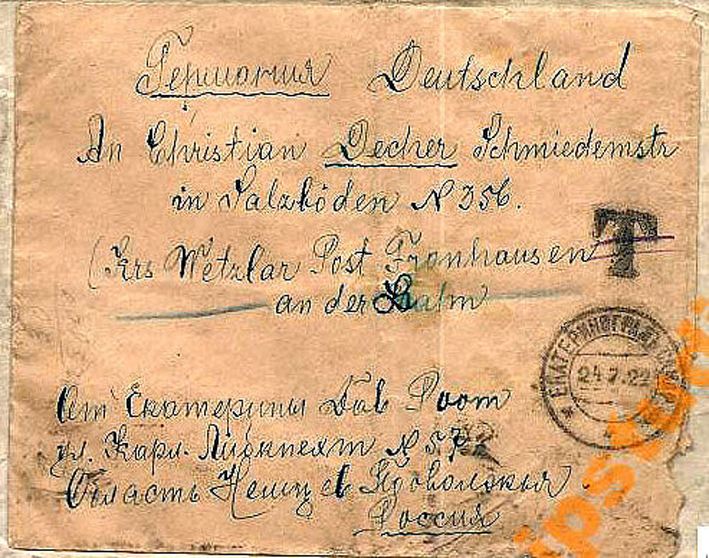 Германия Deutschland
An Christian Decher Schmiedemstr
in Salzböden N 356.
(Krs Wetzlar Post Fronhausen
an der Lahm
T
ЕКАТЕРИНОГРАД
24.7.22
От Екатерины Дав Роот
ул. Карл. Либкнехт N 57
Область Немцев Поволжья.
Россия